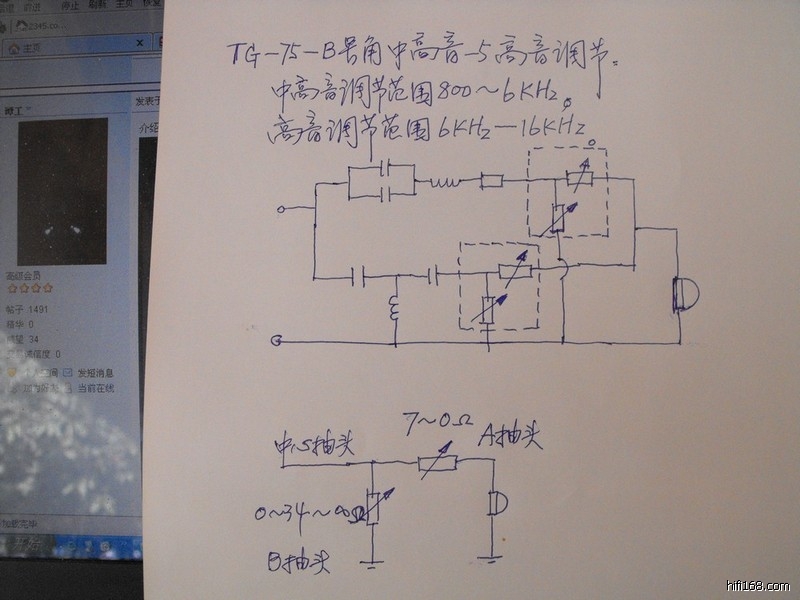 2345.co...
主页
发表于
介绍
高级会员
帖子 1491
精华 0
威望 34
诚信度 0
个人空间 发短消息
加为好友 当前在线
TG-75-B号角中高音-5高音调节。
中高音调节范围800~6KHz。
高音调节范围6KHz—16KHz
7~0Ω
中心抽头
A抽头
0~34~∞Ω
B抽头
hifi168.com